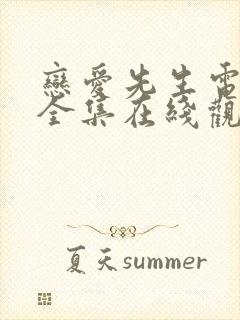 戀愛先生電
全集在綫觀
夏天summer